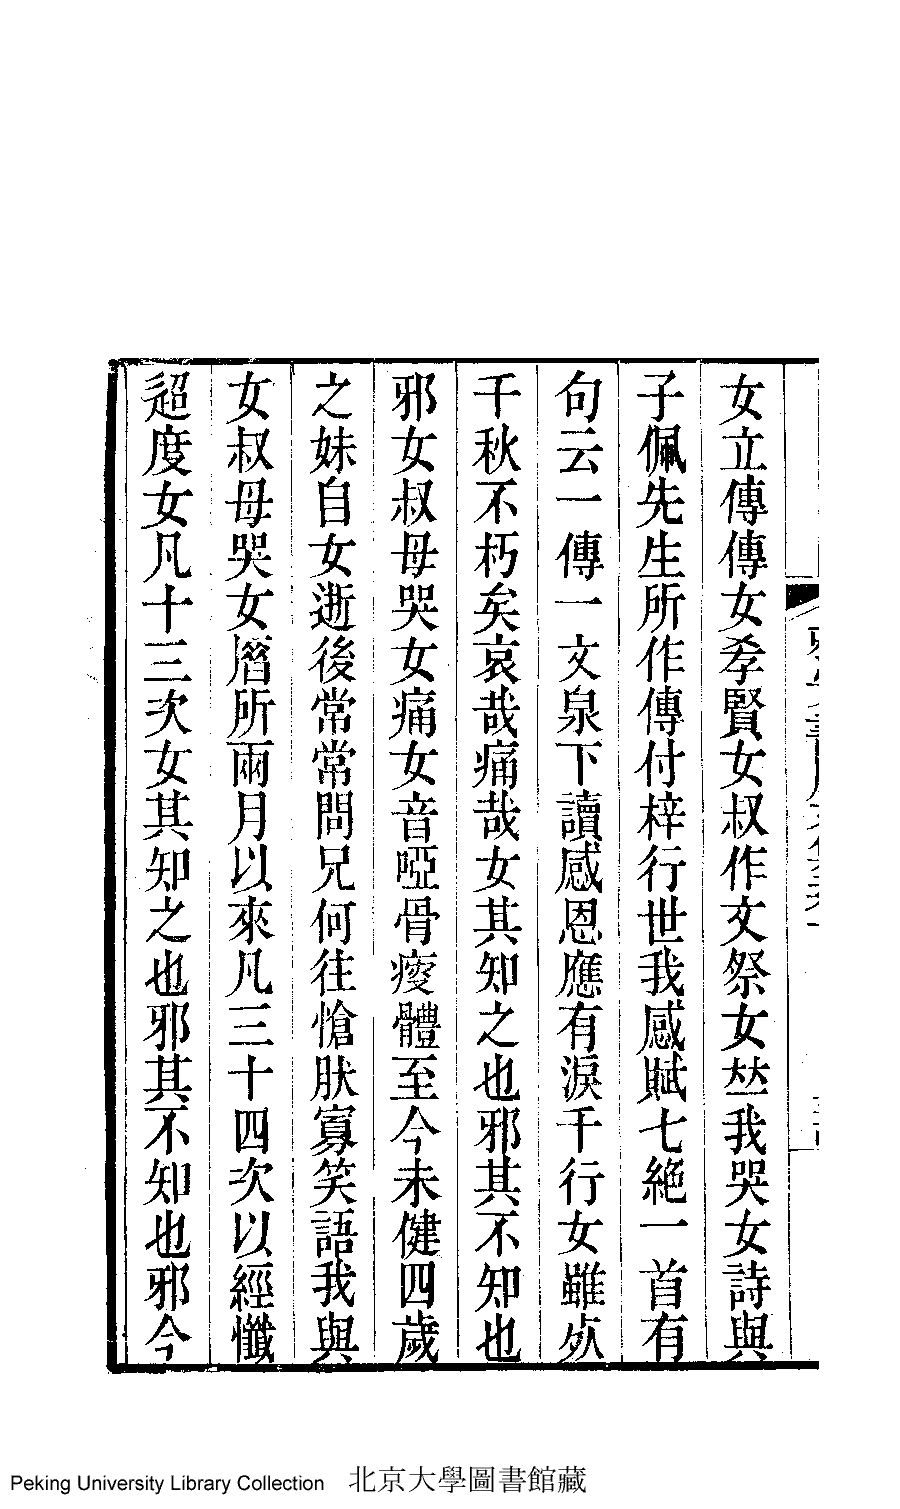 女立傳傳女孝賢女叔作文祭女竝我哭女詩與
子佩先生所作傳付梓行世我感賦七絕一首有
句云一傳一文泉下讀感恩應有淚千行女雖死
千秋不朽矣哀哉痛哉女其知之也邪其不知也
邪女叔母哭女痛女音啞骨痠體至今未健四歲
之妹自女逝後常常問兄何往愴肰寡笑語我與
女叔母哭女厝所兩月以來凡三十四次以經懺
超度女凡十三次女其知之也邪其不知也邪今
Peking University Library Collection 北京大學圖書館藏